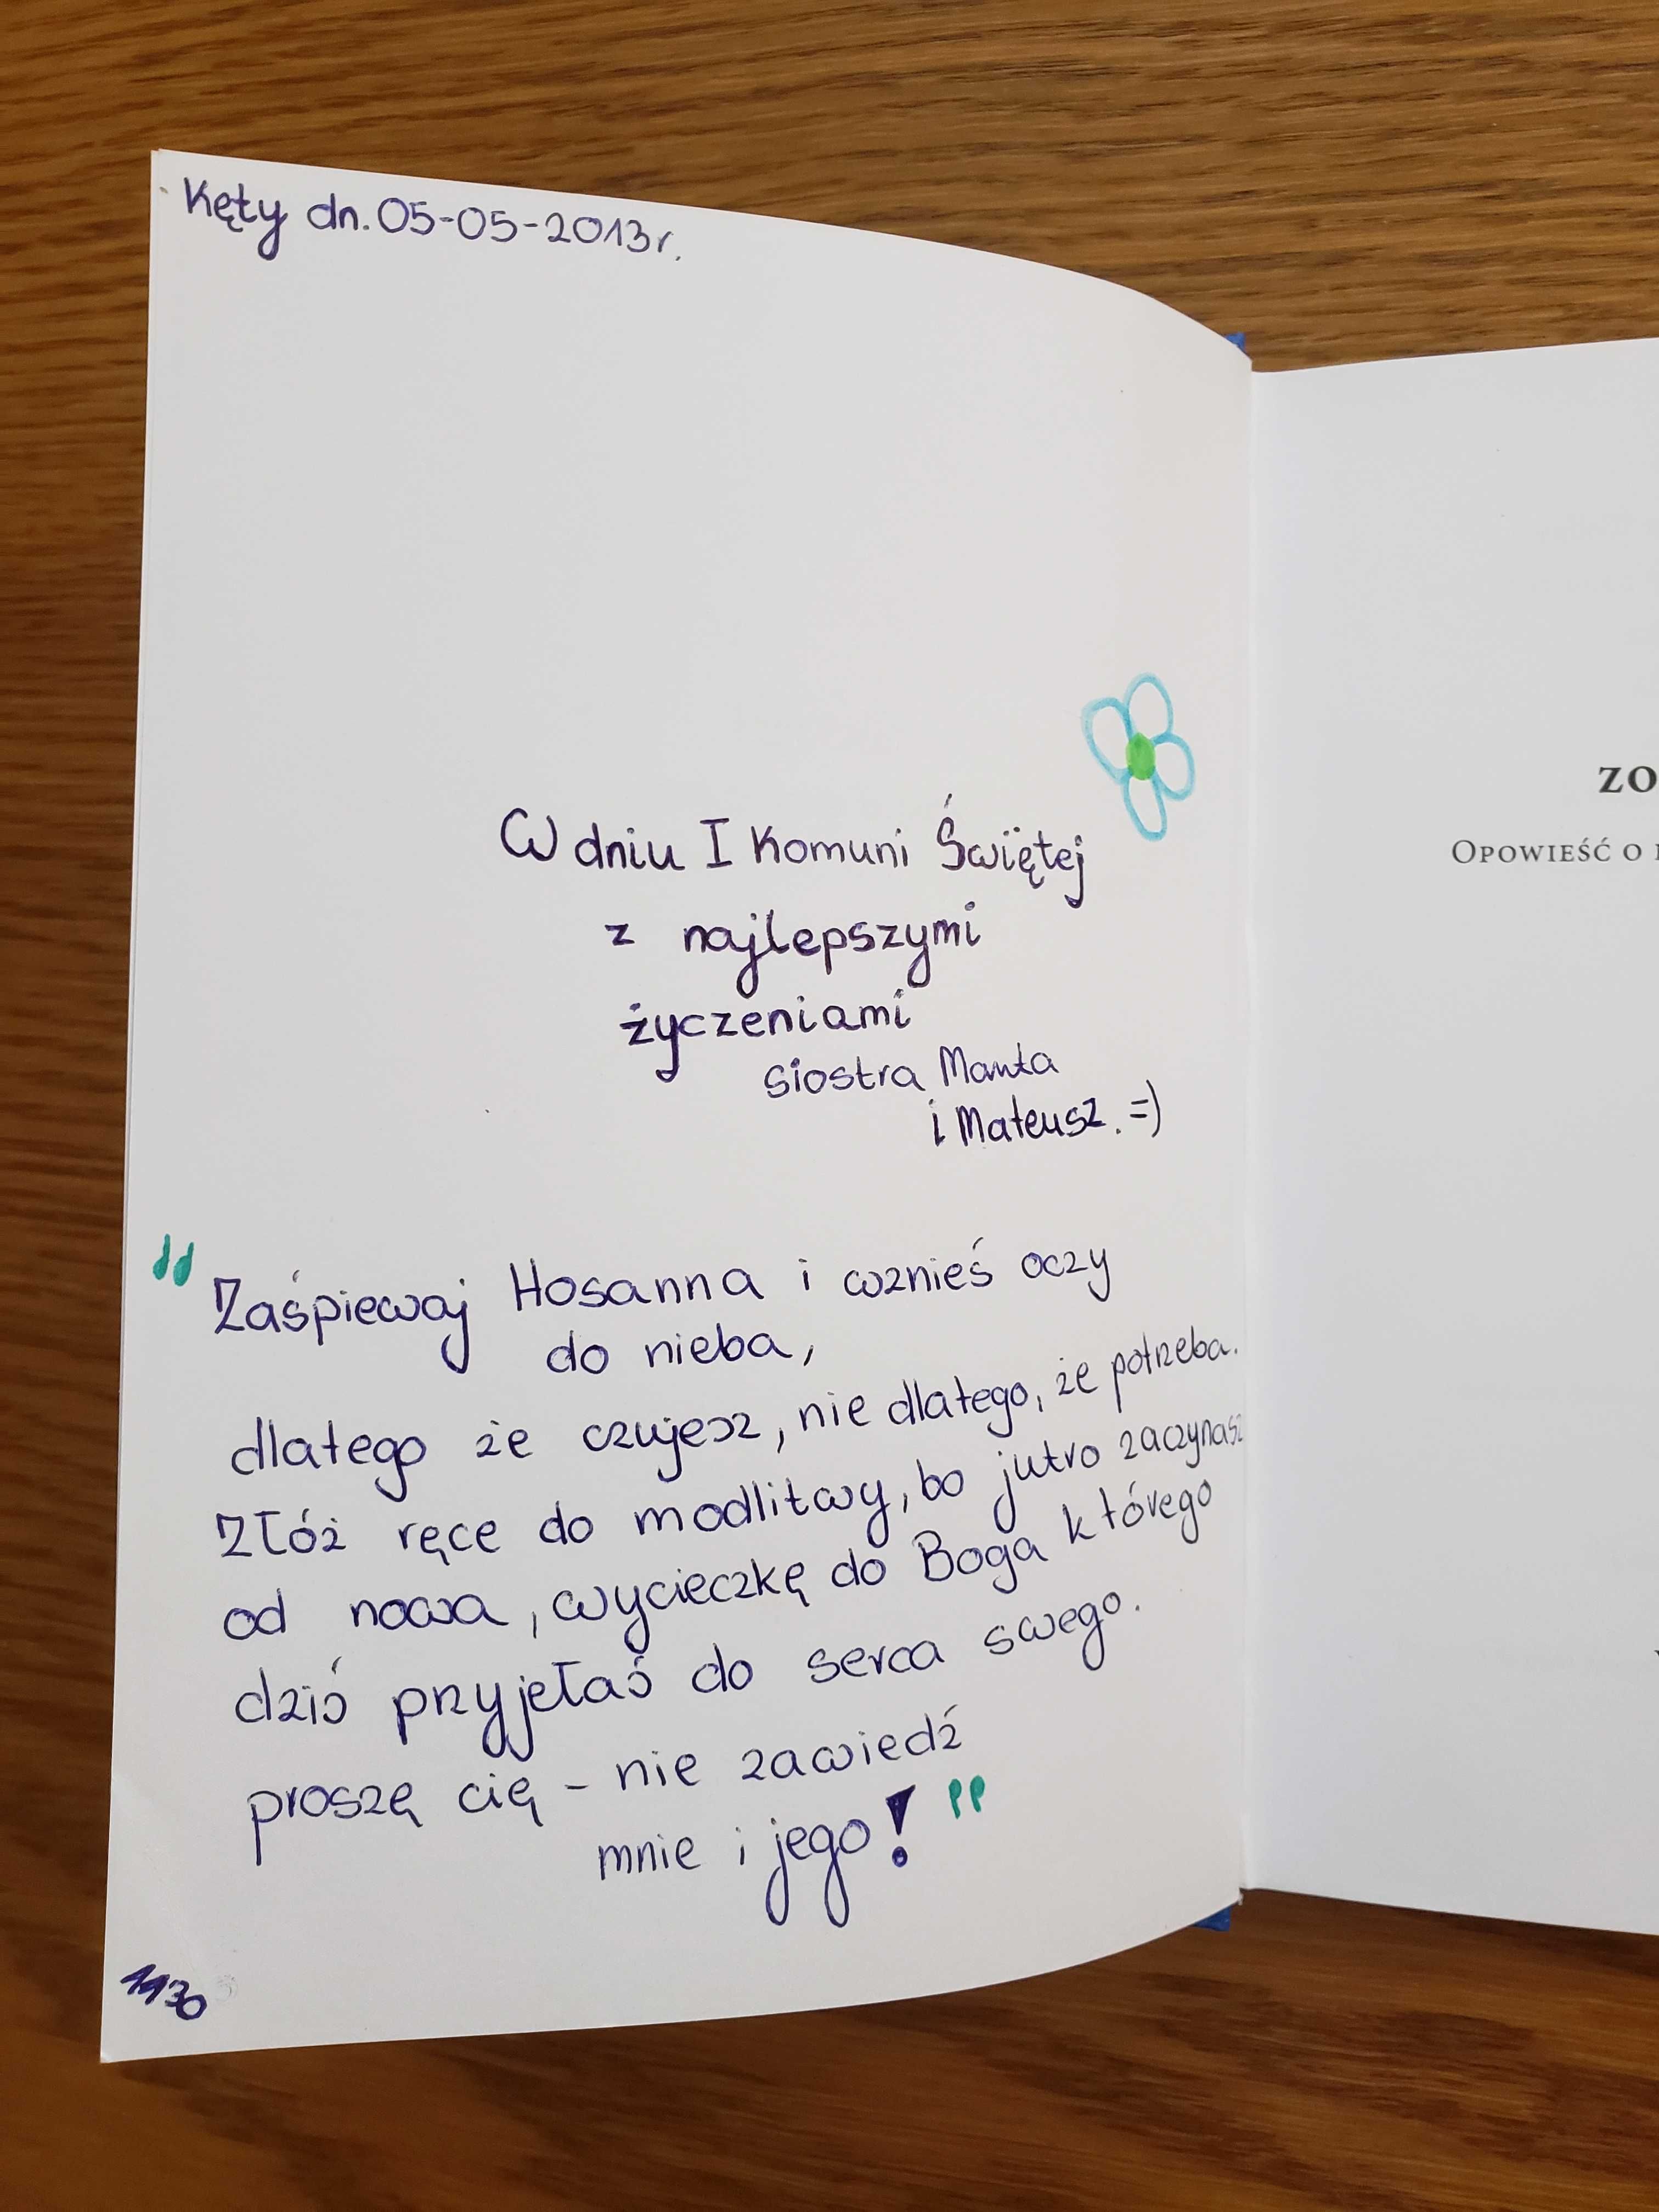 Kęty dn. 05-05-2013r.
W dniu I Komuni Świętej
z najlepszymi
życzeniami
siostra Marta
i Mateusz. =)
" Zaśpiewaj Hosanna i wznieś oczy
do nieba,
dlatego że czujesz, nie dlatego, że potrzeba.
Złóż ręce do modlitwy, bo jutro zaczynasz
od nowa, wycieczkę do Boga którego
dziś przyjełaś do serca swego.
proszę cię - nie zawiedź
mnie i jego! "
1130
ZO
OPOWIEŚĆ O